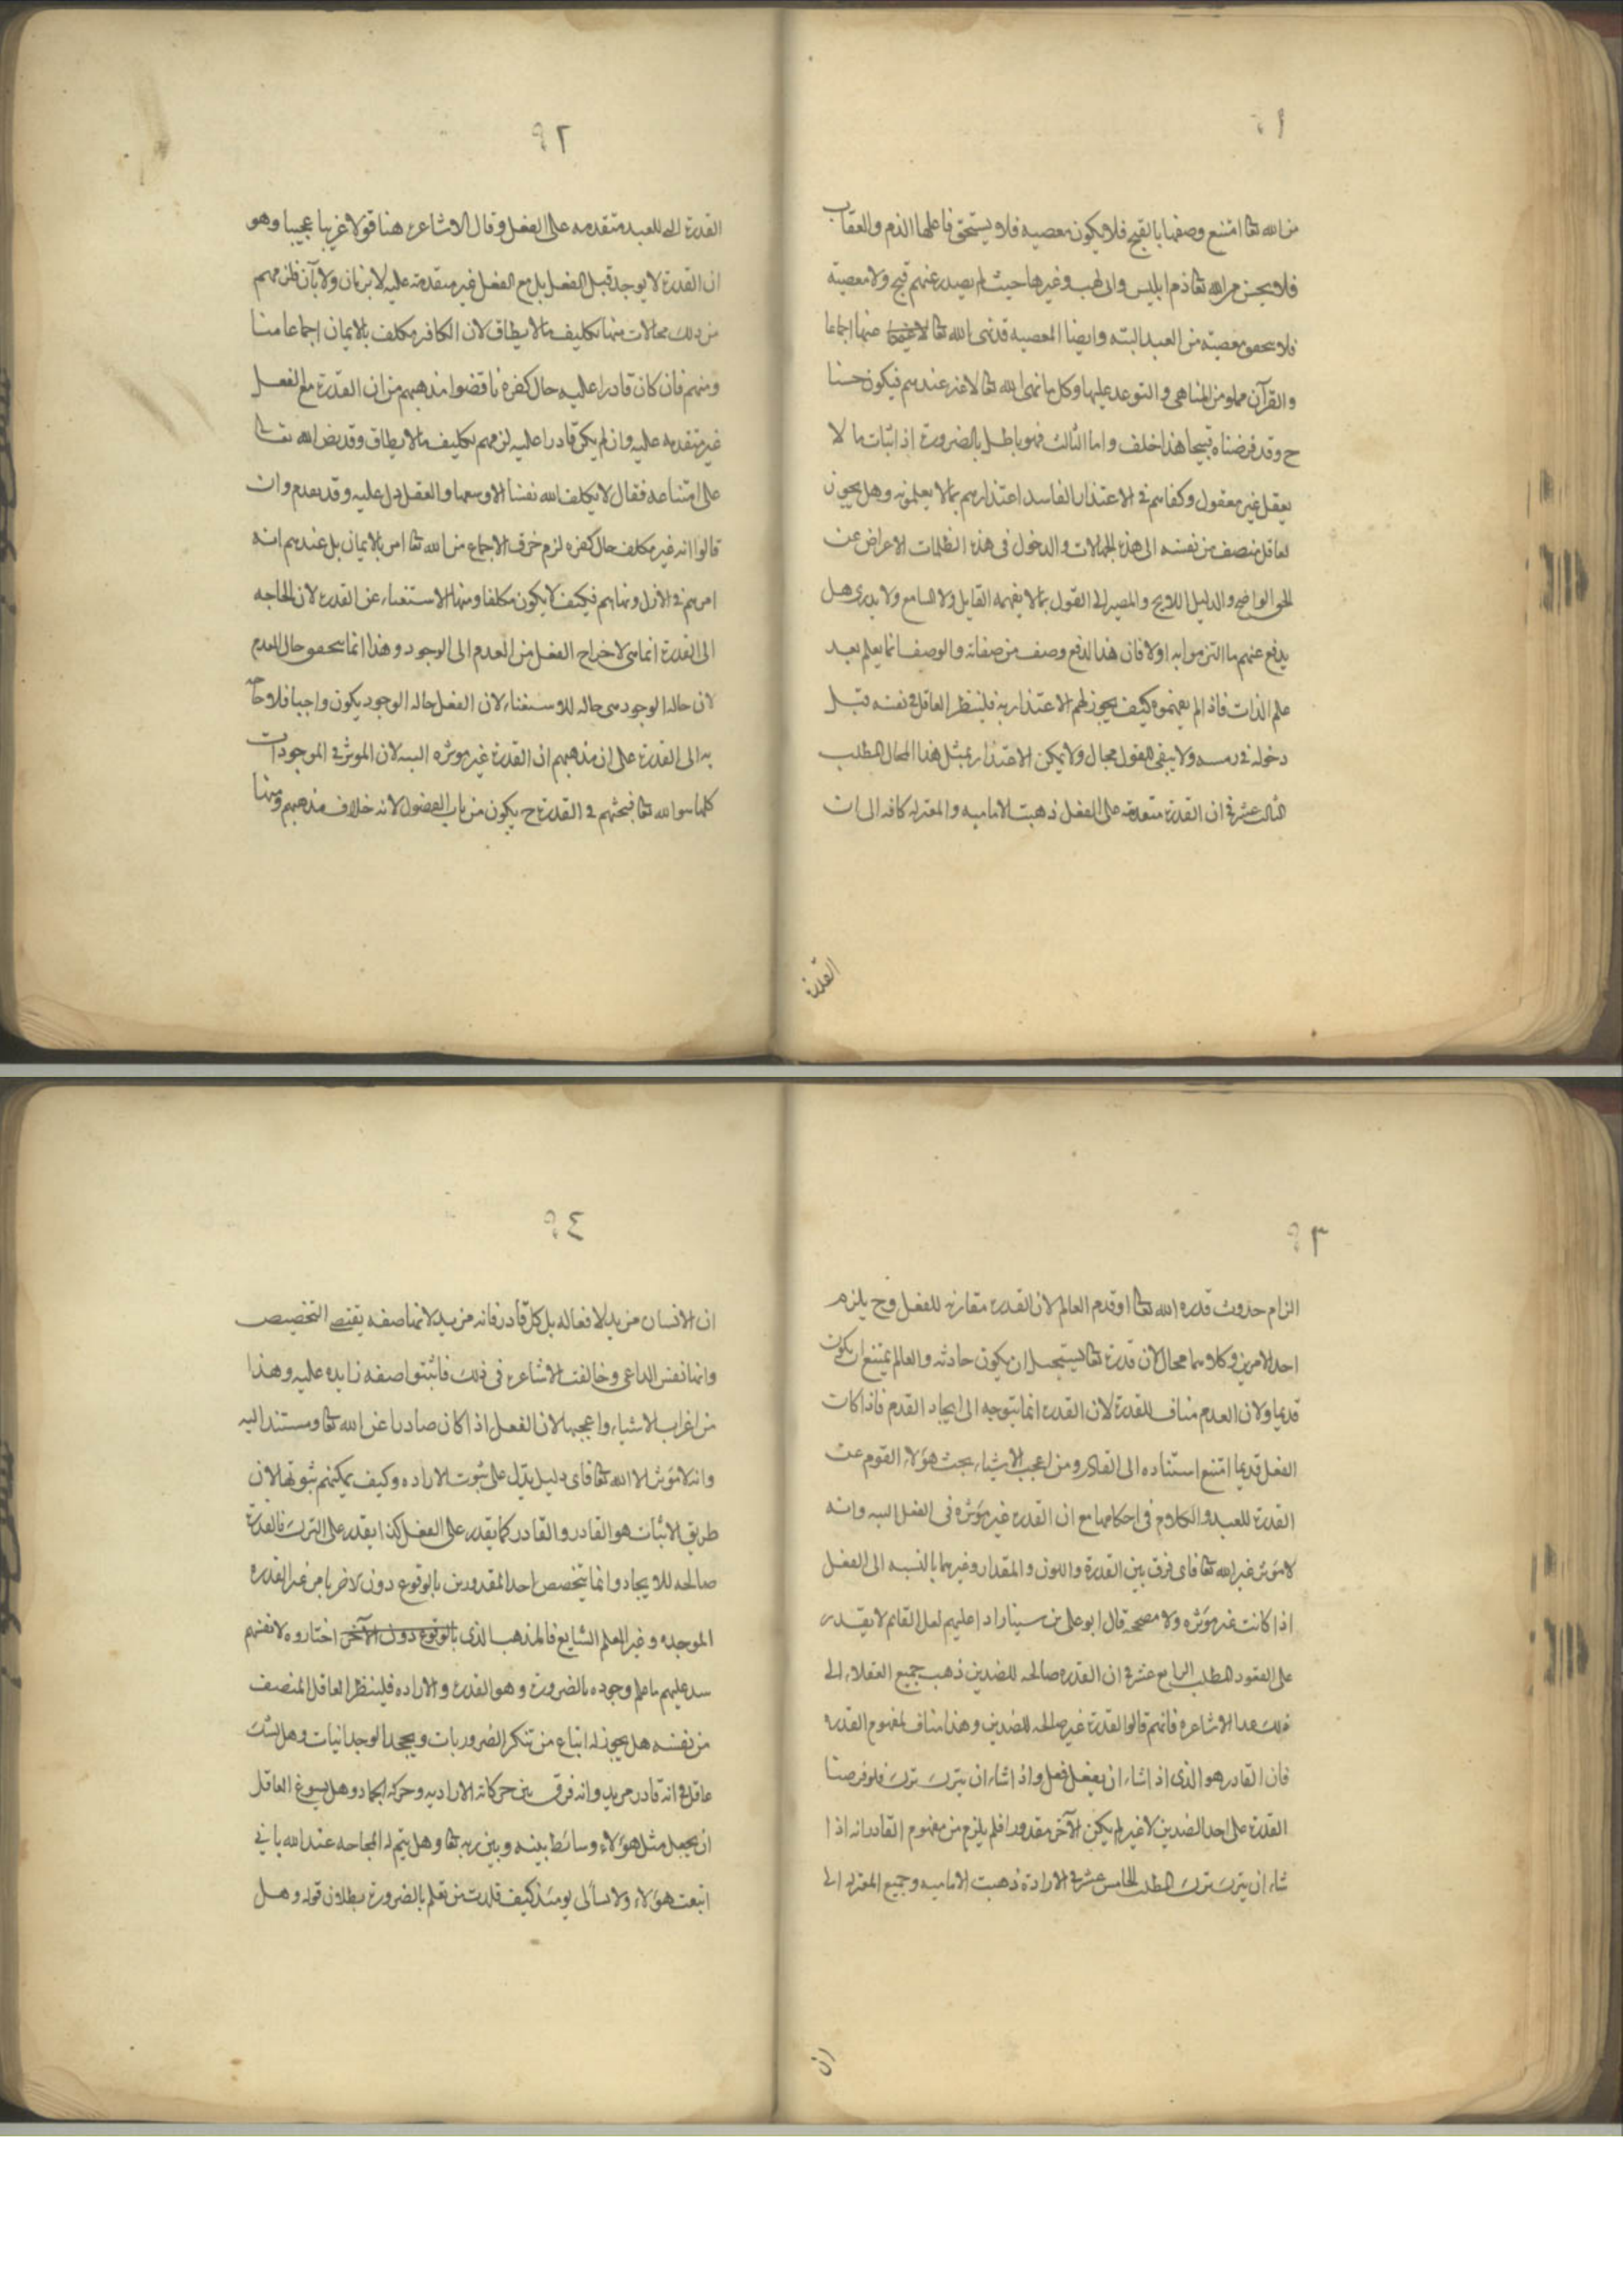 ٩١
من الله تعا امتنع وصفها بالقبح فلا يكون معصيه فلا يستحق فاعلها الذم والعقاب
فلا يحسن من الله تعا ذم ابليس وابى لهب وغيرها حيث لم يصدر عنهم قبح ولا معصية
فلا يتحقق معصية من العبد البته وايضا المعصيه قد نهى الله تعا عنها اجماعا
والقرآن مملو من المناهى والتوعد عليها وكل ما نهى الله تعا لاغير عندهم فيكون حسنا
ح وقد فرضناه قبيحا هذا خلف واما الثالث فهو باطل بالضرورة اذ اثبات ما لا
يعقل غير معقول وكفاهم فى الاعتذار الفاسد اعتذارهم بما لا يعلمونه وهل يجوز
لعاقل منصف من نفسه الى هذه الجهالات والدخول فى هذه الظلمات الاعراض عن
الحق الواضح والدليل اللايح والمصير الى القول بما لا يفهمه القايل ولا السامع ولا يدرى هل
يدفع عنهم ما التزموا به اولا فان هذا لدفع وصف من صفاته والوصف انما يعلم بعد
علم الذات فاذا لم يفهموه كيف يجوز لهم الاعتذار به فلينظر العاقل فى نفسه قبل
دخوله فى رمسه ولا يبقى للقول مجال ولا يمكن الاعتذار بمثل هذا المحال المطلب
الثالث عشر فى ان القدرة متقدمة على الفعل ذهبت الاماميه والمعتزله كافه الى ان
القدرة
٩٢
القدرة التى للعبد متقدمه على الفعل وقال الاشاعره هنا قولا غريبا عجيبا وهو
ان القدرة لا يوجد قبل الفعل بل مع الفعل غير متقدمة عليه لا بزمان ولا بآن فلزمهم
من ذلك محالات منها تكليف ما لا يطاق لان الكافر مكلف بالايمان اجماعا منا
ومنهم فان كان قادرا عليه حال كفره ناقضوا مذهبهم من ان القدرة مع الفعل
غير متقدمه عليه وان لم يكن قادرا عليه لزمهم تكليف ما لا يطاق وقد نص الله تعالى
على امتناعه فقال لا يكلف الله نفسا الا وسعها والعقل دل عليه وقد تقدم وان
قالوا انه غير مكلف حال كفره لزم خرق الاجماع من الله تعا امر بالايمان بل عندهم انه
امرهم فى الازل ونهاهم فكيف لا يكون مكلفا ومنها الاستغناء عن القدرة لان الحاجه
الى القدرة انما هى لاخراج الفعل من العدم الى الوجود وهذا انما يتحقق حال العدم
لان حاله الوجود هى حاله للاستغناء لان الفعل حاله الوجود يكون واجبا فلا حاجه
به الى القدرة على ان مذهبهم ان القدرة غير موثره البته لان الموثر فى الموجودات
كلها هو الله تعا فبحثهم فى القدرة ح يكون من باب الفضول لانه خلاف مذهبهم ومنها
٩٣
الزام حدوث قدره الله تعا او قدم العالم لان القدره مقارنه للفعل وح يلزم
احد الامرين وكلاهما محال لان قدرة تعا يستحيل ان يكون حادثه والعالم يمتنع ان يكون
قديما ولان العدم مناف للقدرة لان القدره انما يتوجه الى ايجاد القدم فاذا كان
الفعل قديما امتنع استناده الى القادر ومن اعجب الاشياء بحث هؤلاء القوم عن
القدرة للعبد والكلام فى احكامها مع ان القدره غير مؤثره فى الفعل البته وانه
لا مؤثر غير الله تعا فاى فرق بين القدرة واللون والمقدار وغيرهما بالنسبه الى الفعل
اذا كانت غير مؤثره ولا مصححه قال ابو على بن سينا رادا عليهم لعل القائم لا يقدر
على القعود المطلب الرابع عشر فى ان القدره صالحه للضدين ذهب جميع العقلاء الى
ذلك عدا الاشاعره فانهم قالوا القدرة غير صالحه للضدين وهذا مناف لمفهوم القدره
فان القادر هو الذى اذا شاء ان يفعل فعل واذا شاء ان يترك ترك فلو فرضنا
القدرة على احد الضدين لاغير لم يكن الآخر مقدورا فلم يلزم من مفهوم القادر انه اذا
شاء ان يترك ترك المطلب الخامس عشر فى الارادة ذهبت الاماميه وجميع المعتزله الى
ان
٩٤
ان الانسان مريد لافعاله بل كل قادر فانه مريد لانها صفه يقتضى التخصيص
وانها نفس الداعى وخالفت الاشاعره فى ذلك فاثبتوا صفه زايده عليه وهذا
من اغرب الاشياء واعجبها لان الفعل اذا كان صادرا عن الله تعا ومستندا اليه
وانه لا مؤثر الا الله تعا فاى دليل يدل على ثبوت الاراده وكيف يمكنهم ثبوتها لان
طريق الاثبات هو القادر والقادر كما يقدر على الفعل كذا يقدر على الترك فالقدرة
صالحه للايجاد وانما يتخصص احد المقدورين بالوقوع دون الاخر بامر غير القدره
الموجده وغير العلم الشايع فالمذهب الذى بالوقوع دون الآخر اختاروه لانفسهم
سد عليهم ما علم وجوده بالضرورة وهو القدرة والاراده فلينظر العاقل المنصف
من نفسه هل يجوز له اتباع من تنكر الضروريات ويجحد الوجدانيات وهل يشك
عاقل فى انه قادر مريد وانه فرق بين حركاته الاراديه وحركه الجماد وهل يسوغ العاقل
ان يجعل مثل هؤلاء وسائط بينه وبين ربه تعا وهل يتم له المحاجه عند الله بانى
اتبعت هؤلاء ولا يسألى يومئذ كيف قلدت من تعلم بالضرورة بطلان قوله وهل